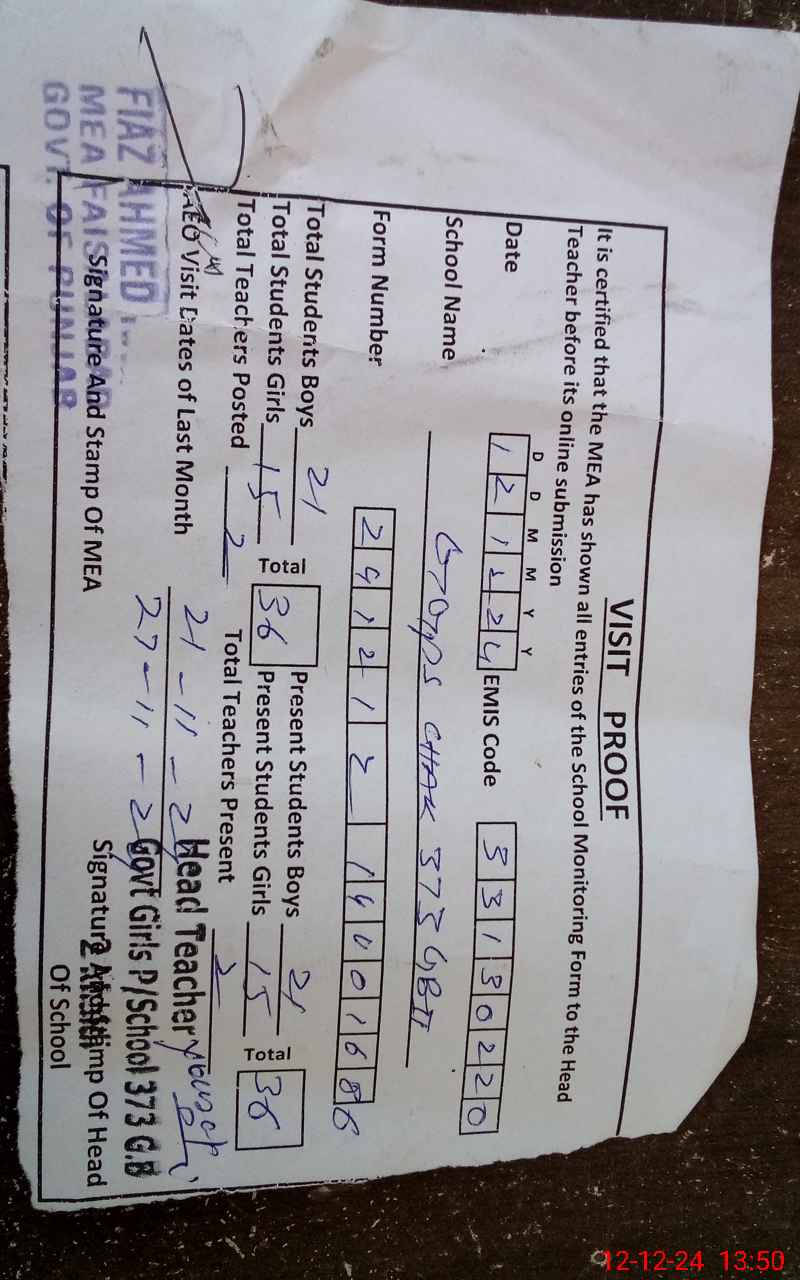 VISIT PROOF
It is certified that the MEA has shown all entries of the School Monitoring Form to the Head
Teacher before its online submission
D D M M Y Y
Date 1 2 1 2 2 4 EMIS Code 3 3 1 3 0 2 2 0
School Name GGPS CHAK 373 GB II
Form Number 2 4 1 2 1 2 1 4 0 0 1 6 8 6
Total Students Boys 21 Present Students Boys 21
Total Students Girls 15 Total 36 Present Students Girls 15 Total 36
Total Teachers Posted 2 Total Teachers Present 2
AEO Visit Dates of Last Month 21-11-2
27-11-2
Head Teacher
Govt Girls P/School 373 G.B
FIAZ AHMED
MEA FAIS
GOVT. OF PUNJAB
Signature And Stamp Of MEA
Signature And Stamp Of Head
Of School
12-12-24 13:50